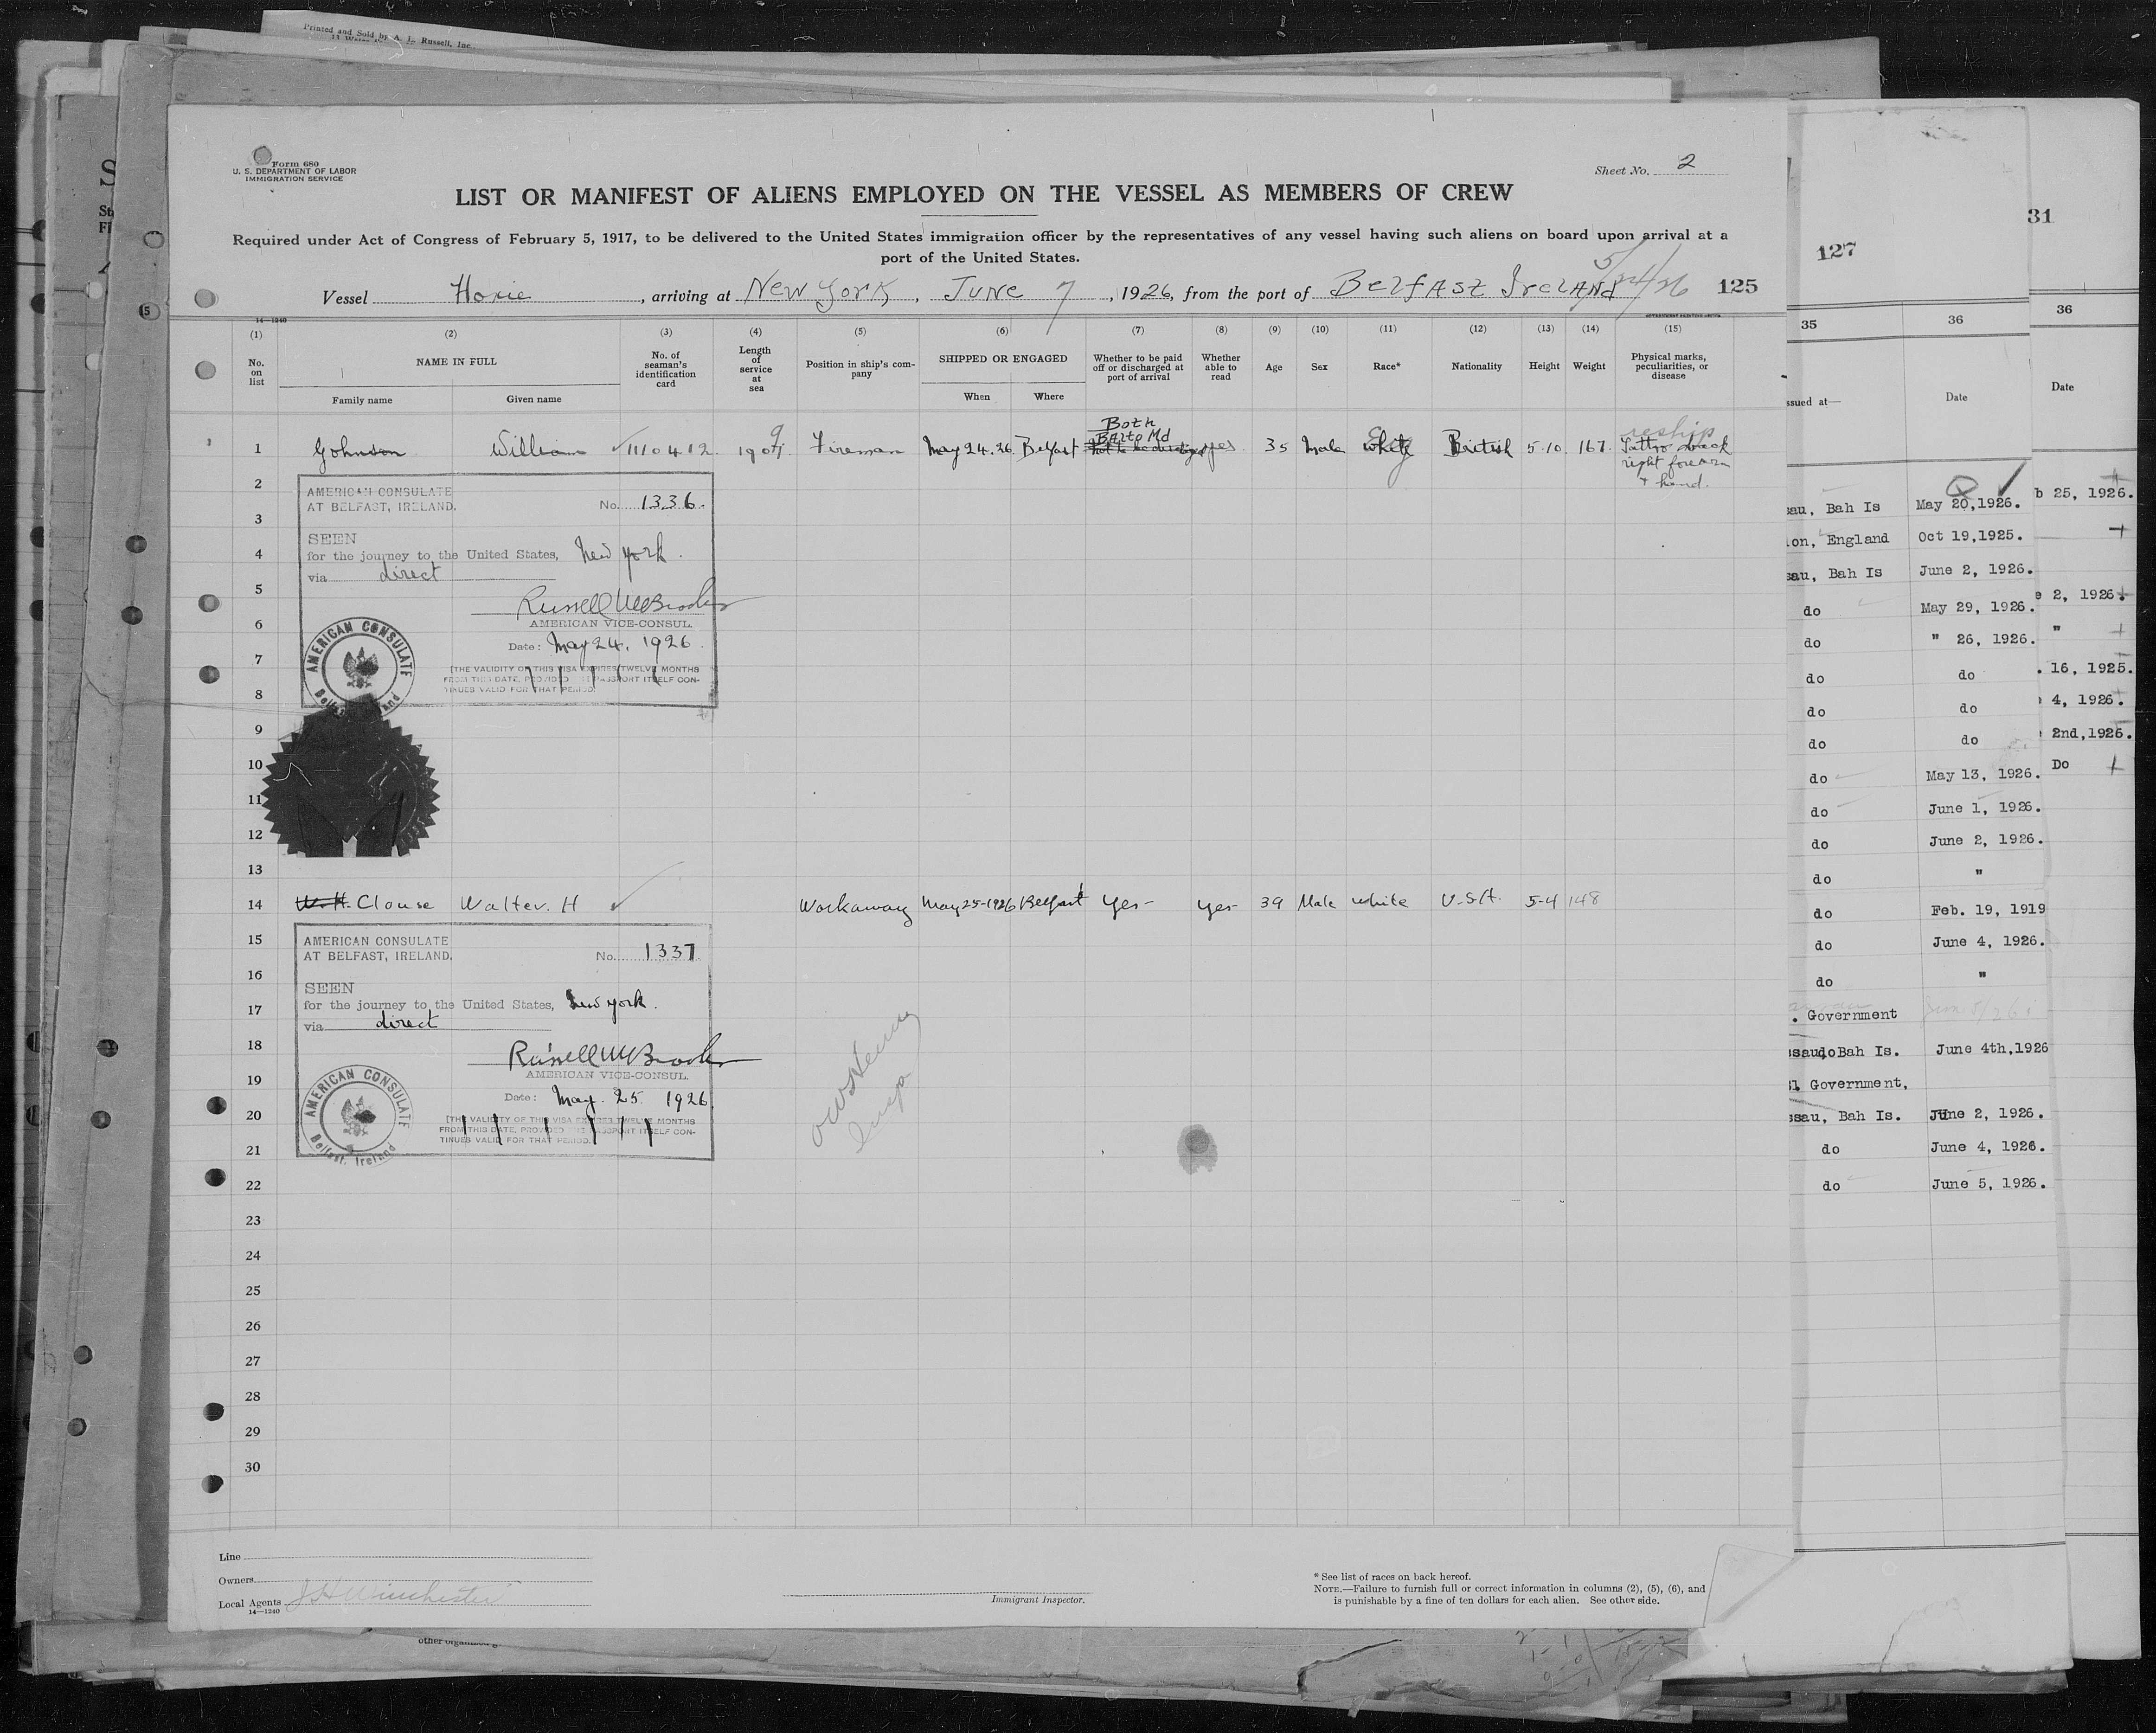 Printed and Sold by A. L. Russell, Inc.
Form 680
U. S. DEPARTMENT OF LABOR
IMMIGRATION SERVICE
Sheet No. 2
LIST OR MANIFEST OF ALIENS EMPLOYED ON THE VESSEL AS MEMBERS OF CREW
Required under Act of Congress of February 5, 1917, to be delivered to the United States immigration officer by the representatives of any vessel having such aliens on board upon arrival at a
port of the United States.
5/24/26
Vessel Hoxie, arriving at New York, June 7, 1926, from the port of Belfast Ireland 125
14—1240
(1) (2) (3) (4) (5) (6) (7) (8) (9) (10) (11) (12) (13) (14) (15)
No. on list
NAME IN FULL
Family name Given name
No. of seaman's identification card
Length of service at sea
Position in ship's company
SHIPPED OR ENGAGED
When Where
Whether to be paid off or discharged at port of arrival
Whether able to read
Age
Sex
Race*
Nationality
Height
Weight
Physical marks, peculiarities, or disease
Both
Balto Md
reship
1 Johnson William 1110412 Fireman May 24.26 Belfast yes 35 Male White British 5.10 167 Tattoo
right forearm
+ hand.
2
AMERICAN CONSULATE
AT BELFAST, IRELAND. No. 1336.
3
SEEN
4
for the journey to the United States, New York.
via direct
5
6
AMERICAN VICE-CONSUL.
Date: May 24, 1926.
7
[THE VALIDITY OF THIS VISA EXPIRES TWELVE MONTHS
FROM THIS DATE, PROVIDED THE PASSPORT ITSELF CON-
TINUES VALID FOR THAT PERIOD.
8
AMERICAN CONSULATE
Belfast, Ireland
9
10
11
12
13
14 W.H. Clouse Walter. H Workaway May 25-1926 Belfast Yes- Yes- 39 Male White U.S.A. 5-4 148
15
AMERICAN CONSULATE
AT BELFAST, IRELAND. No. 1337.
16
SEEN
17
for the journey to the United States, New York.
via direct
18
19
AMERICAN VICE-CONSUL.
Date: May. 25 1926
20
[THE VALIDITY OF THIS VISA EXPIRES TWELVE MONTHS
FROM THIS DATE, PROVIDED THE PASSPORT ITSELF CON-
TINUES VALID FOR THAT PERIOD.
21
AMERICAN CONSULATE
Belfast, Ireland
22
23
24
25
26
27
28
29
30
Line
Owners
Local Agents J H Winchester
14—1240
Immigrant Inspector.
* See list of races on back hereof.
NOTE.—Failure to furnish full or correct information in columns (2), (5), (6), and
is punishable by a fine of ten dollars for each alien. See other side.
127
35 36
Issued at— Date
Bah Is May 20,1926.
England Oct 19,1925.
Bah Is June 2, 1926.
do May 29, 1926.
do " 26, 1926.
do do
do do
do do
do May 13, 1926.
do June 1, 1926.
do June 2, 1926.
do "
do Feb. 19, 1919
do June 4, 1926.
do "
Government
Bah Is. June 4th,1926
Government,
Bah Is. June 2, 1926.
do June 4, 1926.
do June 5, 1926.
31
36
Date
25, 1926.
2, 1926.
"
16, 1925.
4, 1926.
2nd,1926.
Do